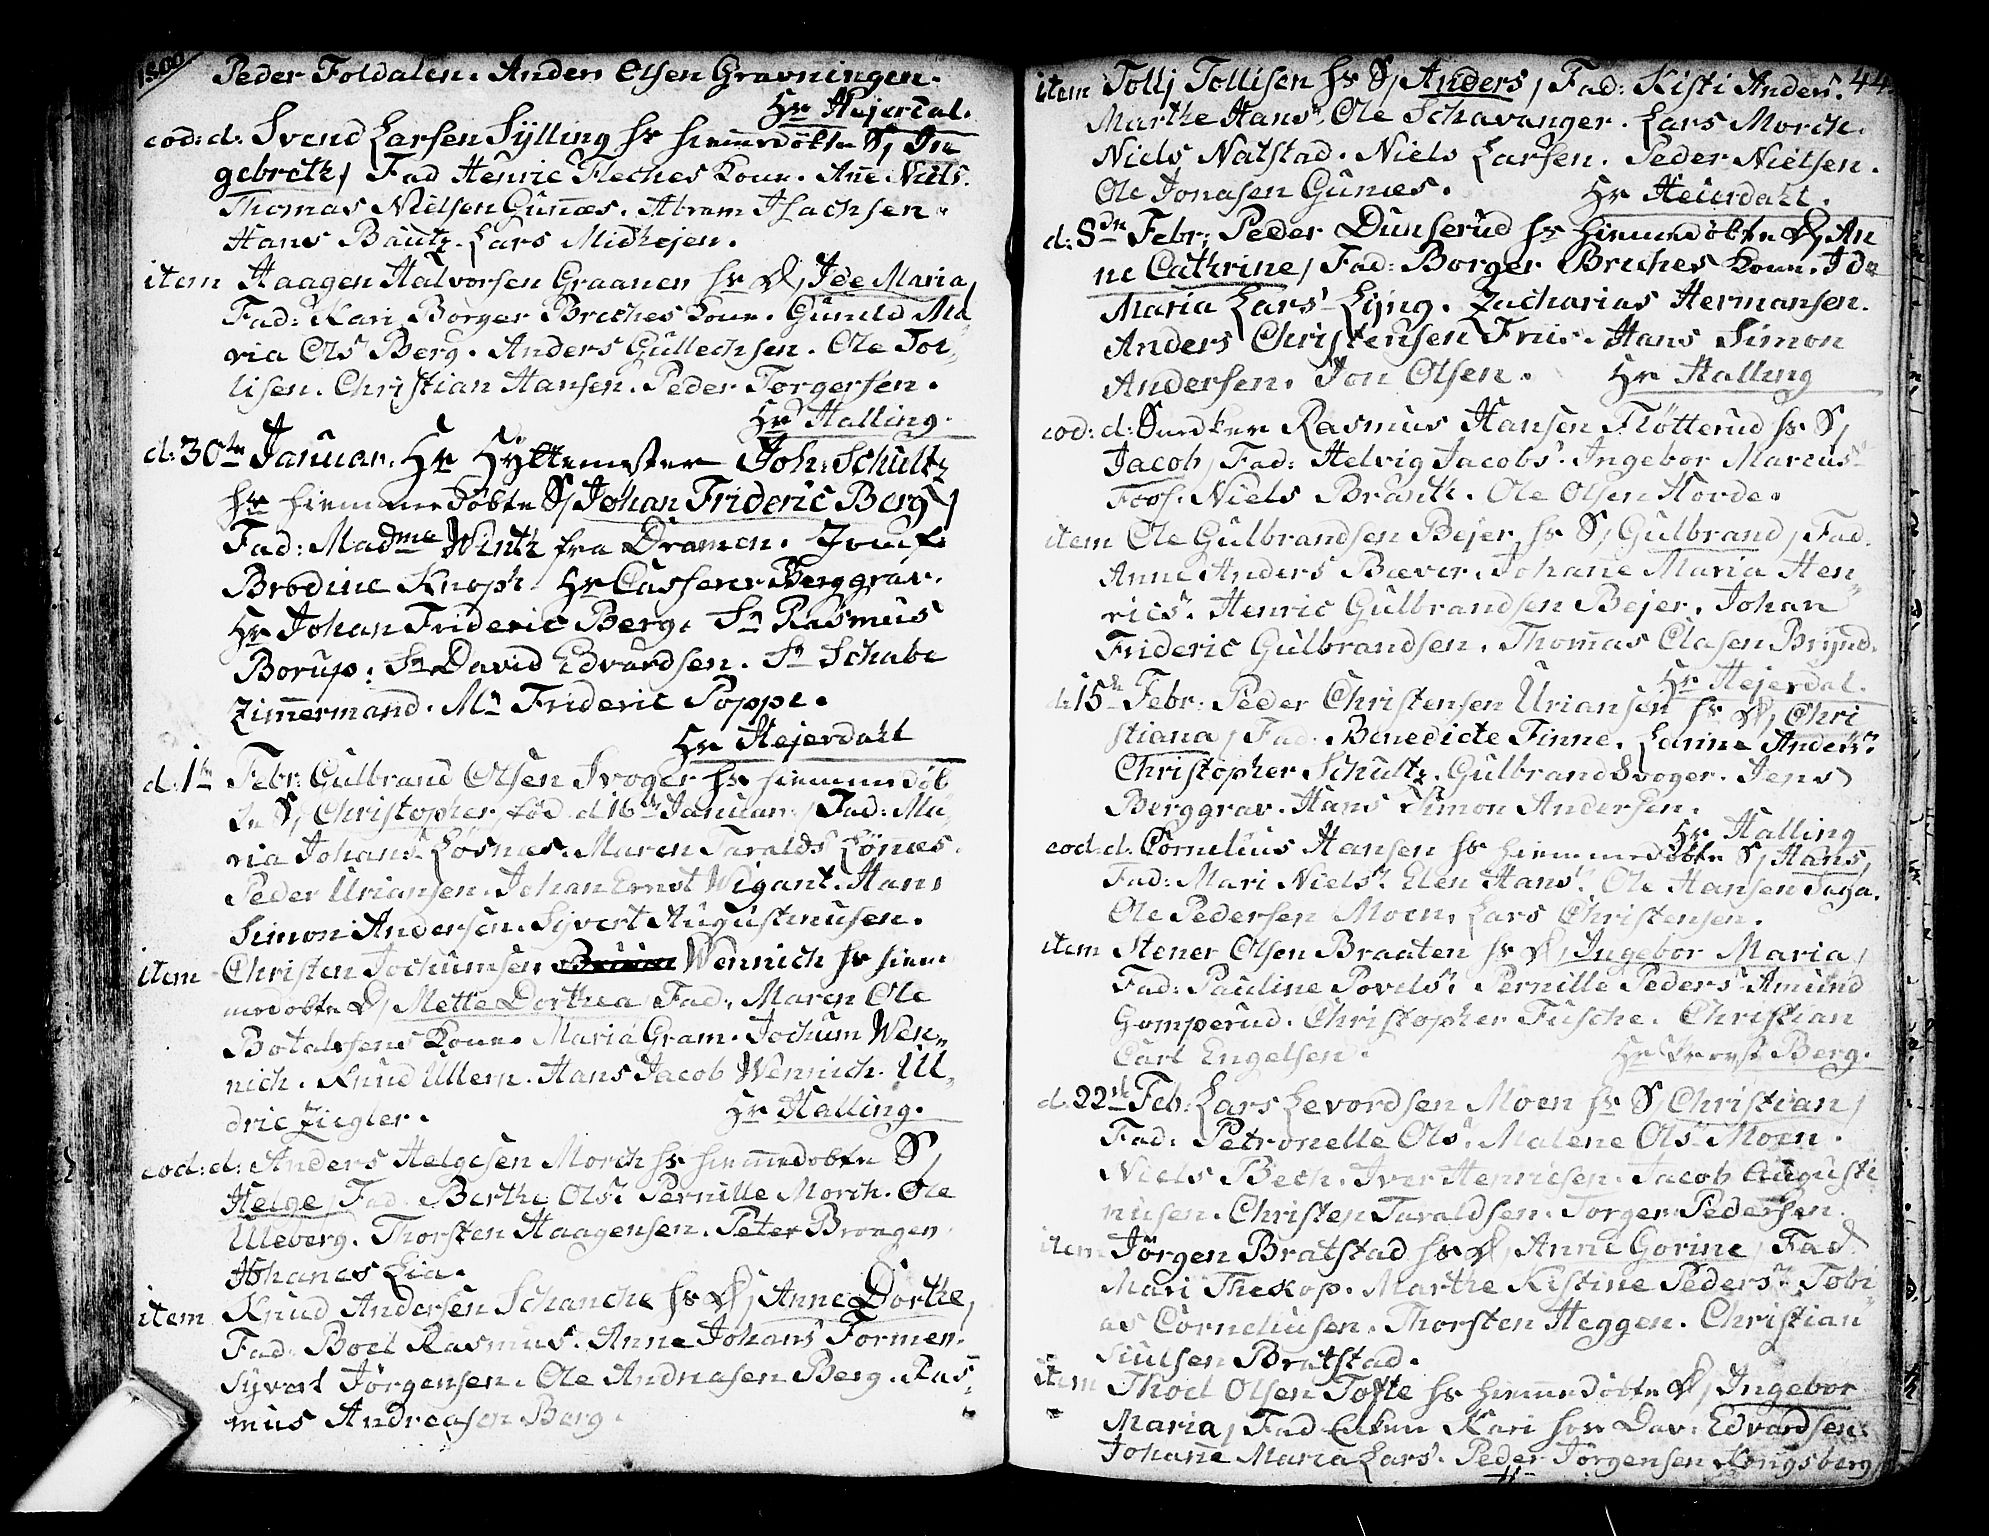 1800.
Peder Foldalen. Anders Olsen Gravningen.
Hr Hejerdal.
eod: d: Svend Larsen Sÿlling hs hiemmedöbte S, In
gebreth, Fad Henric Fleches Kone. Ane Niels.
Thomas Nielsen Gunæs. Abram Isachsen.
Hans Bautz. Lars Midhejen.
item Haagen Halvorsen Graanen hs D, Ide Maria,
Fad: Kari Borger Breches Kone. Gunild Ma
ria Ols Berg. Anders Gullechsen. Ole Tol
lisen. Christian Hansen. Peder Torgersen.
Hr Halling.
d: 30te Januar. Hr Hÿttemester Joh: Schultz
hs hiemmedöbte S, Johan Frideric Berg,
Fad: Madme Winth fra Dramen. Jomf.
Brodine Knoph. Hr Casserer Berggrav.
Hr Johan Frideric Berg. Sr Rasmus
Borup. Sr David Edvardsen. Sr Schabe
Zimmermand. Mr Frideric Poppe.
Hr Hejerdahl
d. 1te Febr: Gulbrand Olsen Svoger hs hiemmedöb
te S, Christopher, föd d 16de Januar, Fad: Ma
ria Johans Lösnæs. Maren Taralds Lönæs.
Peder Uriansen. Johan Ernst Wigant. Hans
Simon Andersen. Syvert Augustinusen.
item Christen Jochumsen Wennich hs hiem
medöbte D, Mette Dorthea, Fad: Maren Ole
Botalvsens Kone. Maria Gram. Jochum Wen
nich. Knud Ullern. Hans Jacob Wennich. Ul
dric Ziegler.
Hr Halling.
eod: d: Anders Helgesen Morch hs hiemmedöbte S,
Helge, Fad. Berthe Ols. Pernille Morch. Ole
Uleberg. Thorsten Haagensen. Peter Brongen
Johanes Lia.
item Knud Andersen Schanche hs D, Anne Dorthe,
Fad: Boel Rasmus. Anne Johans Formen.
Syvert Jörgensen. Ole Andreasen Berg. Ras
mus Andreasen Berg.
44
item Tollj Tollisen hs S, Anders, Fad: Kisti Anders.
Marthe Hans. Ole Schavanger. Lars Morch.
Niels Natstad. Niels Larsen. Peder Nielsen.
Ole Jonasen Gunæs.
Hr Heierdahl.
d: 8de Febr: Peder Dunserud hs hiemmedöbte D, An
ne Cathrine, Fad: Borger Breches Kone. Ide
Maria Lars Ljng. Zacharias Hermansen.
Anders Christensen Friis. Hans Simon
Andersen. Jon Olsen.
Hr Halling
eod: d: Snedker Rasmus Hansen Flötterud hs S,
Jacob, Fad: Helvig Jacobs. Ingebor Marcus
Foos. Niels Brauth. Ole Olsen Horde.
item Ole Gulbrandsen Bejer hs S, Gulbrand, Fad.
Anne Anders Bæver. Johane Maria Hen
rics. Henric Gulbrandsen Bejer. Johan
Frideric Gulbrandsen. Thomas Clasen Brÿnd.
Hr Hejerdal.
d: 15de Febr: Peder Christensen Uriansen hs D, Chri
stiana, Fad: Benedicte Finne. Larine Anders
Christopher Schultz. Gulbrand Svoger. Jens
Berggrav. Hans Simon Andersen.
Hr Halling
eod: d: Cornelius Hansen hs hiemmedöbte S, Hans,
Fad: Mari Niels. Elen Hans. Ole Hansen Saga.
Ole Pedersen Moen. Lars Christensen.
item Stener Olsen Braaten hs D, Ingebor Maria,
Fad: Pauline Povels. Pernille Peders. Amund
Gomperud. Christopher Fusche. Christian
Carl Engelsen.
Hr Provst Berg.
d: 22de Feb: Lars Levordsen Moen hs S, Christian,
Fad: Petronelle Ols. Malene Ols Moen.
Niels Bech. Iver Henricsen. Jacob Augusti
nusen. Christen Taraldsen. Torger Pedersen.
item Jörgen Bratstad hs D, Anne Gorine, Fad
Mari Thekop. Marthe Kistine Peders. Tobi
as Corneliusen. Thorsten Heggen. Christian
Siulsen Bratstad.
item Thoel Olsen Tofte hs hiemmedöbte D, Ingebor
Maria, Fad Enken Kari hos Dav: Edvardsen.
Johanne Maria Lars. Peder Jörgensen Kongsberg